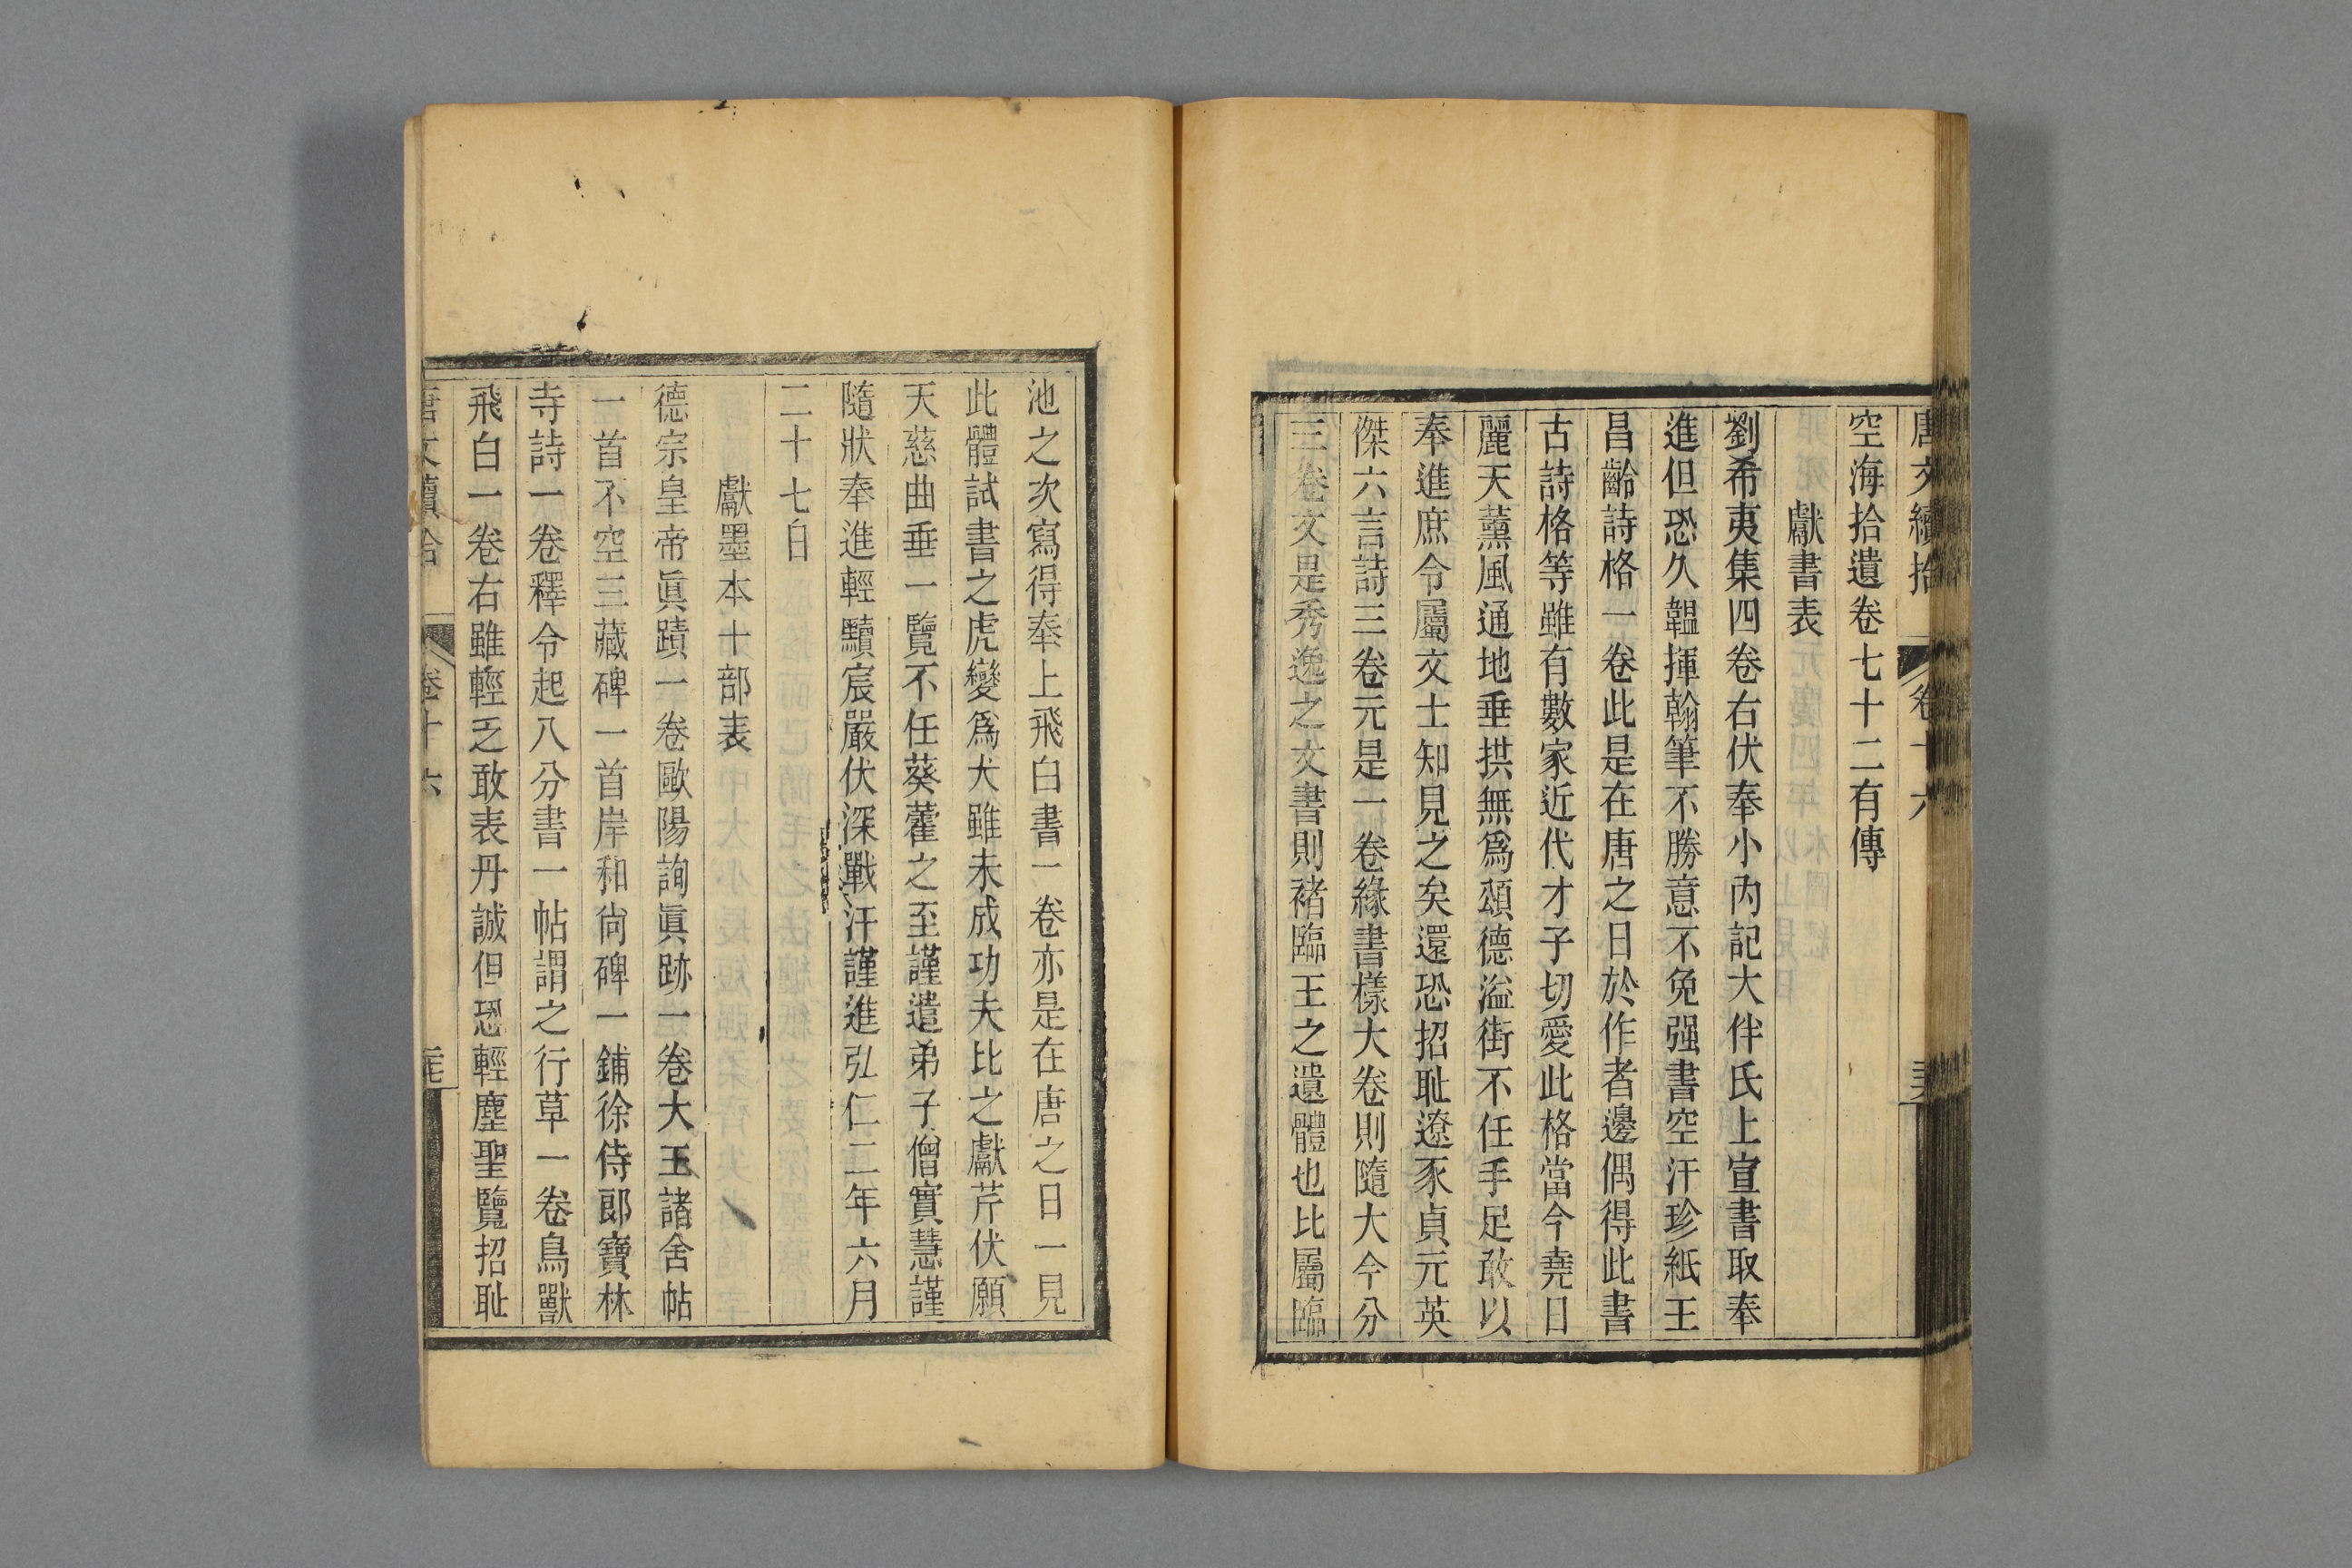 唐文續拾 卷十六
空海拾遺卷七十二有傳
獻書表
劉希夷集四卷右伏奉小內記大伴氏上宣書取奉
進但恐久韞揮翰筆不勝意不免强書空汗珍紙王
昌齡詩格一卷此是在唐之日於作者邊偶得此書
古詩格等雖有數家近代才子切愛此格當今堯日
麗天薰風通地垂拱無爲頌德溢街不任手足敢以
奉進庶令屬文士知見之矣還恐招耻遼豕貞元英
傑六言詩三卷元是一卷緣書樣大卷則隨大今分
三卷文是秀逸之文書則褚臨王之遺體也比屬臨
池之次寫得奉上飛白書一卷亦是在唐之日一見
此體試書之虎變爲犬雖未成功夫比之獻芹伏願
天慈曲垂一覽不任葵藿之至謹遣弟子僧實慧謹
隨狀奉進輕黷宸嚴伏深戰汗謹進弘仁二年六月
二十七日
獻墨本十部表
德宗皇帝眞蹟一卷歐陽詢眞跡一卷大王諸舍帖
一首不空三藏碑一首岸和尙碑一鋪徐侍郎寶林
寺詩一卷釋令起八分書一帖謂之行草一卷鳥獸
飛白一卷右雖輕乏敢表丹誠但恐輕塵聖覽招耻
唐文續拾 卷十六